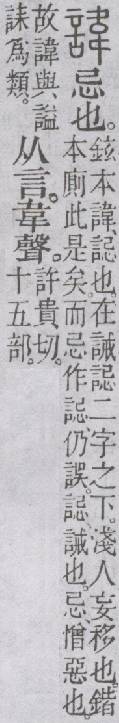 諱
忌也。
鉉本諱、誋也。在誡誋二字之下。淺人妄移也。鍇
本廁此是矣。而忌作誋仍誤。誋、誡也。忌、憎惡也。
故諱與諡
誄爲類。
从言。韋聲。
許貴切。
十五部。